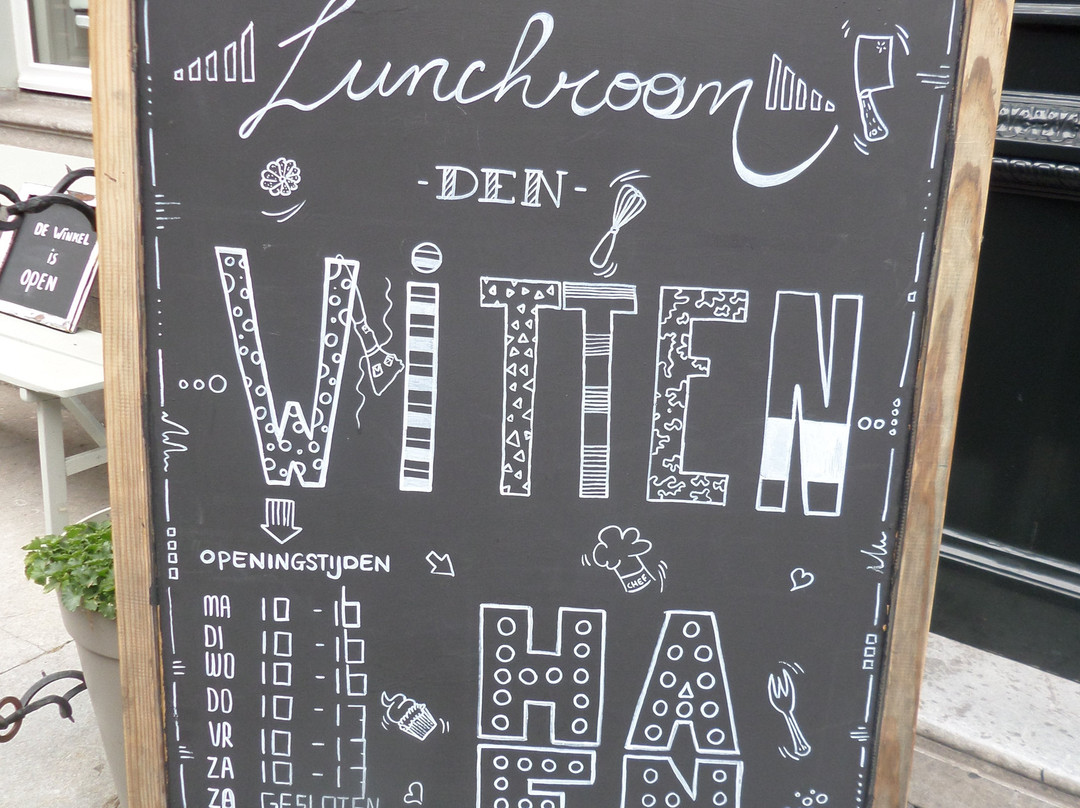 Lunchroom
-DEN-
WiTTEN
OPENINGSTIJDEN
MA 10 - 16
DI 10 - 16
WO 10 - 16
DO 10 - 17
VR 10 - 17
ZA 10 - 17
ZO GESLOTEN
CHEF
HA
EN
DE WiNKEL
is
OPEN